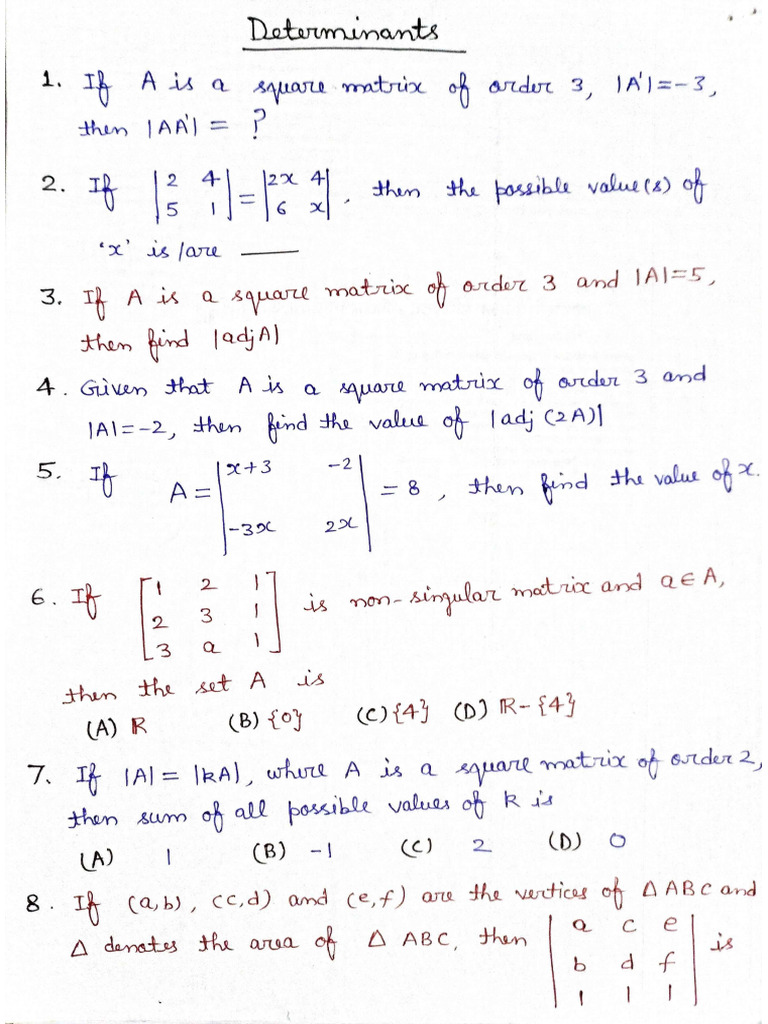 Determinants
1. If A is a square matrix of order 3, |A'|=-3,
then |AA'| = ?
2. If |2 4| = |2x 4|, then the possible value(s) of
|5 1| |6 x|
'x' is/are ____
3. If A is a square matrix of order 3 and |A|=5,
then find |adjA|
4. Given that A is a square matrix of order 3 and
|A|=-2, then find the value of |adj (2A)|
5. If A = |x+3 -2| = 8, then find the value of x.
|-3x 2x|
6. If [1 2 1] is non-singular matrix and a ∈ A,
[2 3 1]
[3 a 1]
then the set A is
(A) ℝ (B) {0} (C) {4} (D) ℝ-{4}
7. If |A| = |kA|, where A is a square matrix of order 2,
then sum of all possible values of k is
(A) 1 (B) -1 (C) 2 (D) 0
8. If (a,b), (c,d) and (e,f) are the vertices of Δ ABC and
Δ denotes the area of Δ ABC, then |a c e| is
|b d f|
|1 1 1|